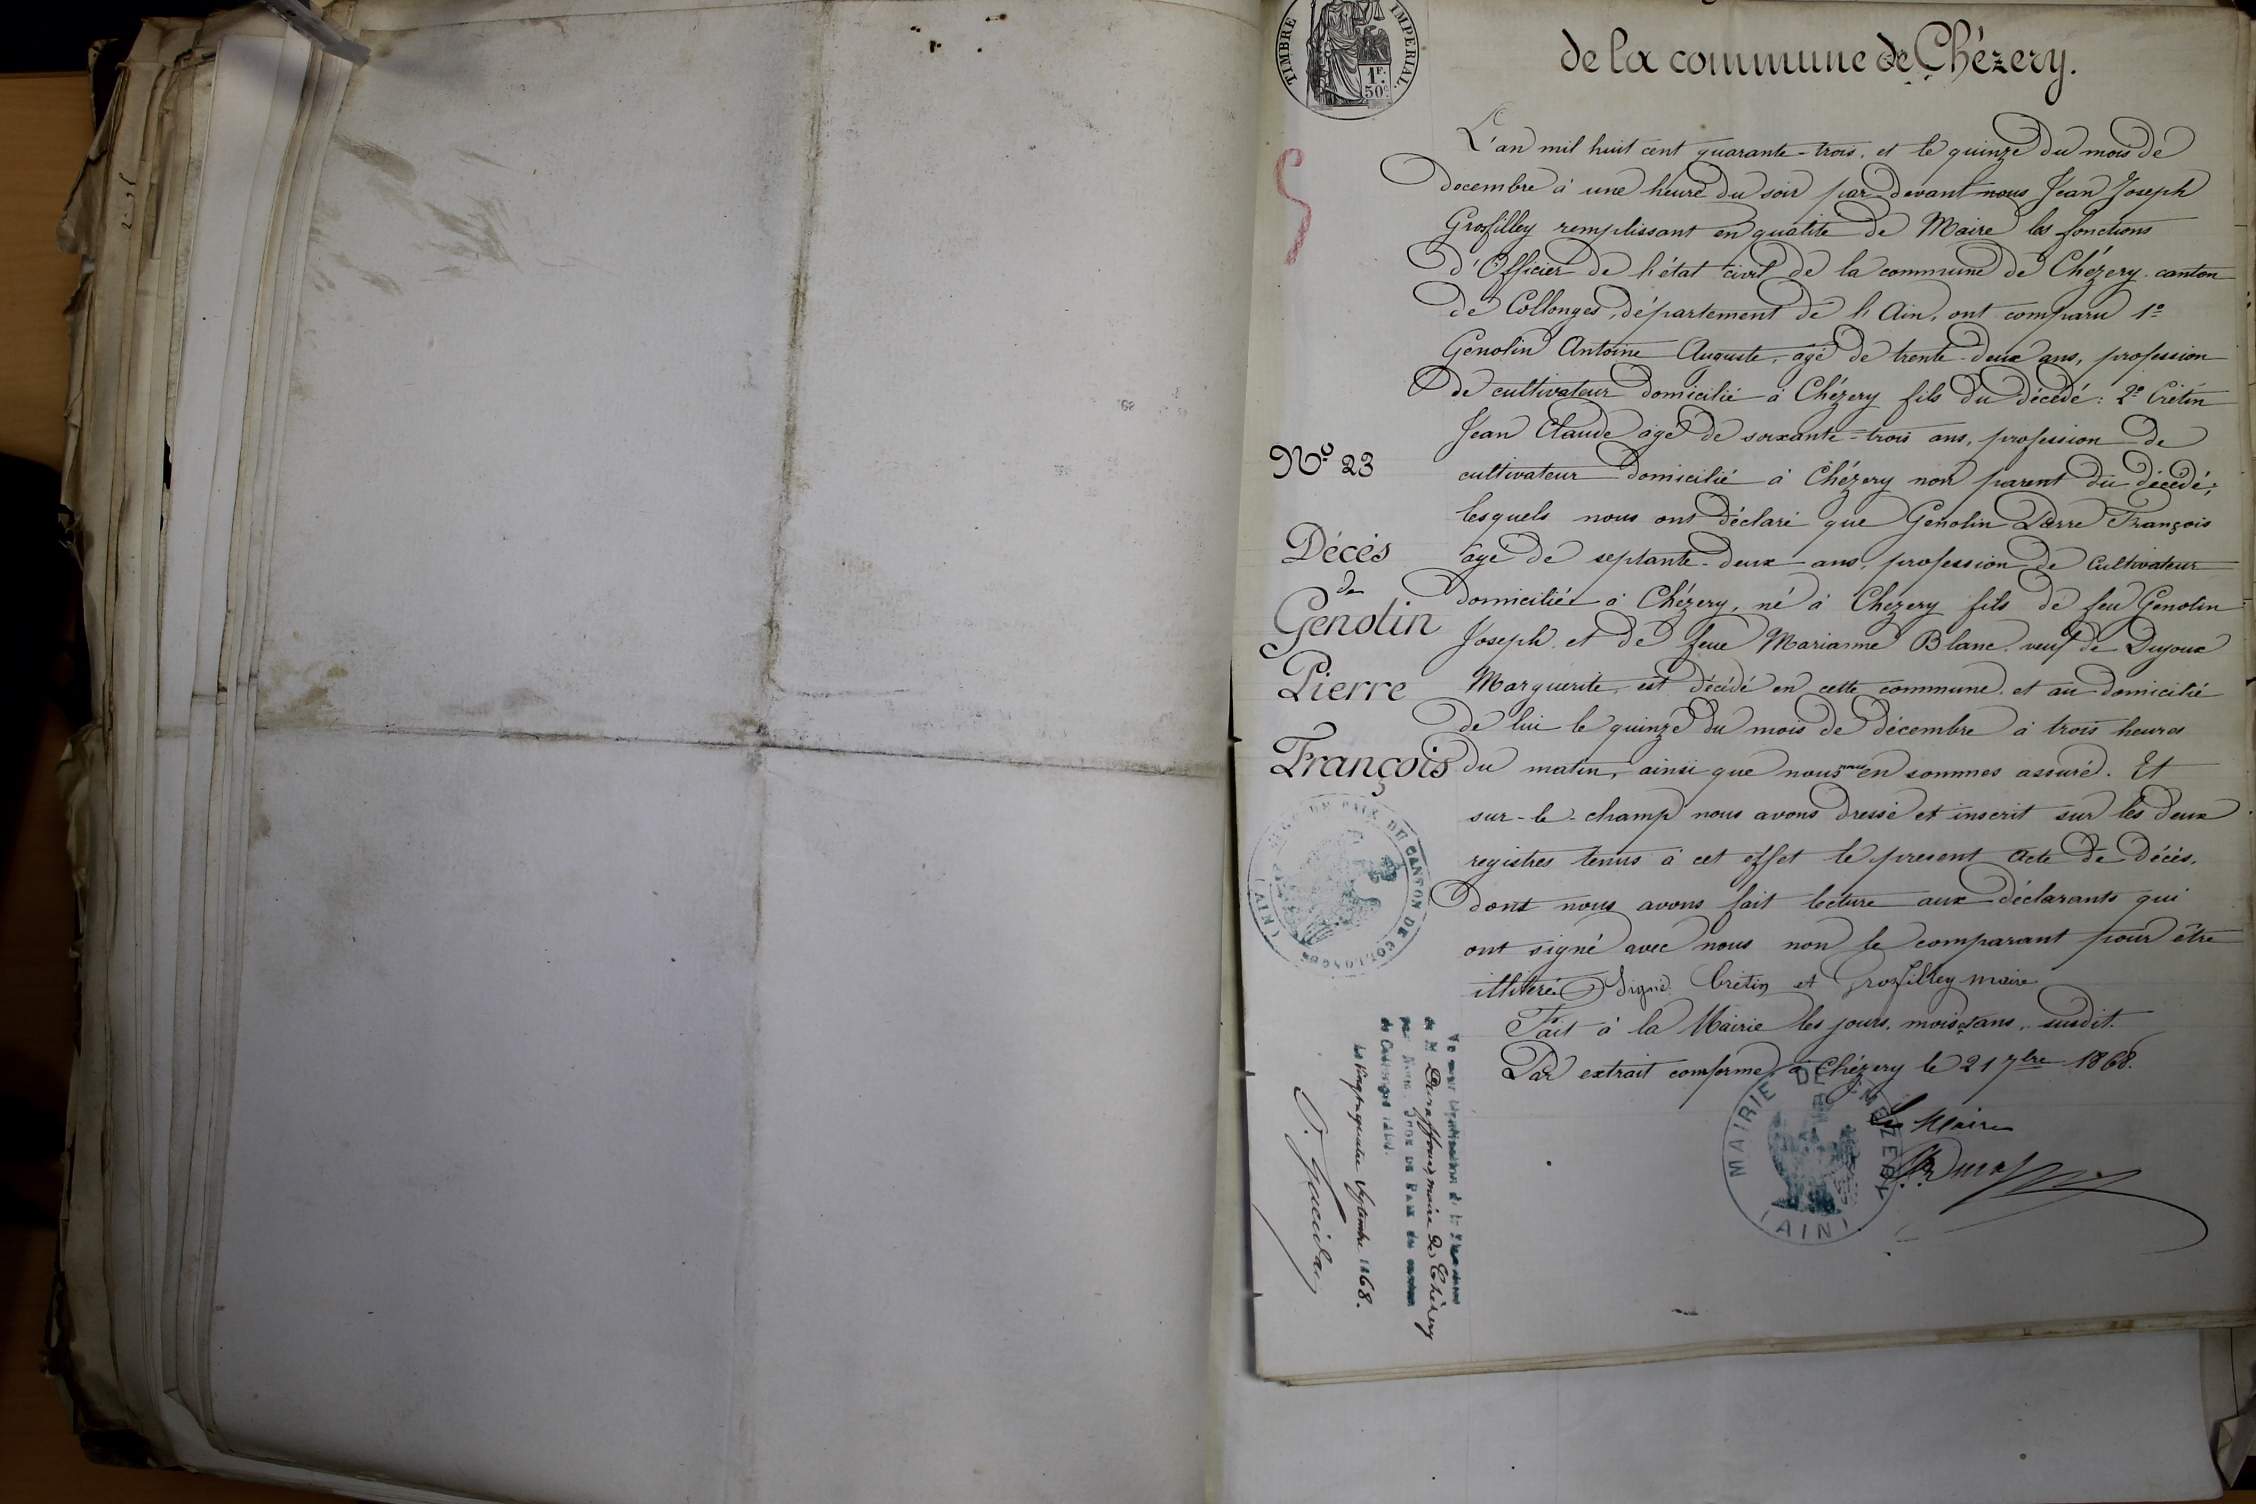 TIMBRE IMPERIAL
1F.
50c
de la commune de Chézery.
L'an mil huit cent quarante-trois, et le quinze du mois de
decembre à une heure du soir par devant nous Jean Joseph
Grosfilley remplissant en qualité de Maire les fonctions
d'Officier de l'état civil de la commune de Chézery canton
de Collonges, département de l'Ain, ont comparu 1º
Genolin Antoine Auguste, agé de trente-deux ans, profession
de cultivateur domicilié à Chézery fils du décedé: 2º Crétin
Jean Claude agé de soixante-trois ans, profession de
cultivateur domicilié à Chézery non parent du décedé;
lesquels nous ont déclaré que Genolin Pierre François
agé de septante-deux ans, profession de Cultivateur
domicilié à Chézery, né à Chezery fils de feu Genolin
Joseph et de feue Marianne Blanc veuf de Dujoux
Marguerite, est décédé en cette commune et au domicilié
de lui le quinze du mois de décembre à trois heures
du matin, ainsi que nous nous en sommes assuré. Et
sur-le-champ nous avons dressé et inscrit sur les deux
registres tenus à cet effet le present acte de décès,
dont nous avons fait lecture aux déclarants qui
ont signé avec nous non le comparant pour être
illitéré. Signé: Crétin et Grosfilley maire
Fait à la Mairie les jours, mois et ans, susdit.
Par extrait conforme à Chézery le 21 7bre 1868.
Le Maire
MAIRIE DE CHEZERY
(AIN)
Nº 23
Décès
de
Genolin
Pierre
François
DE PAIX DU CANTON DE COLLONGES (AIN)
de M Duraffourg maire de Chézery
par Nous JUGE DE PAIX du canton
de Collonges (Ain).
septembre 1868.